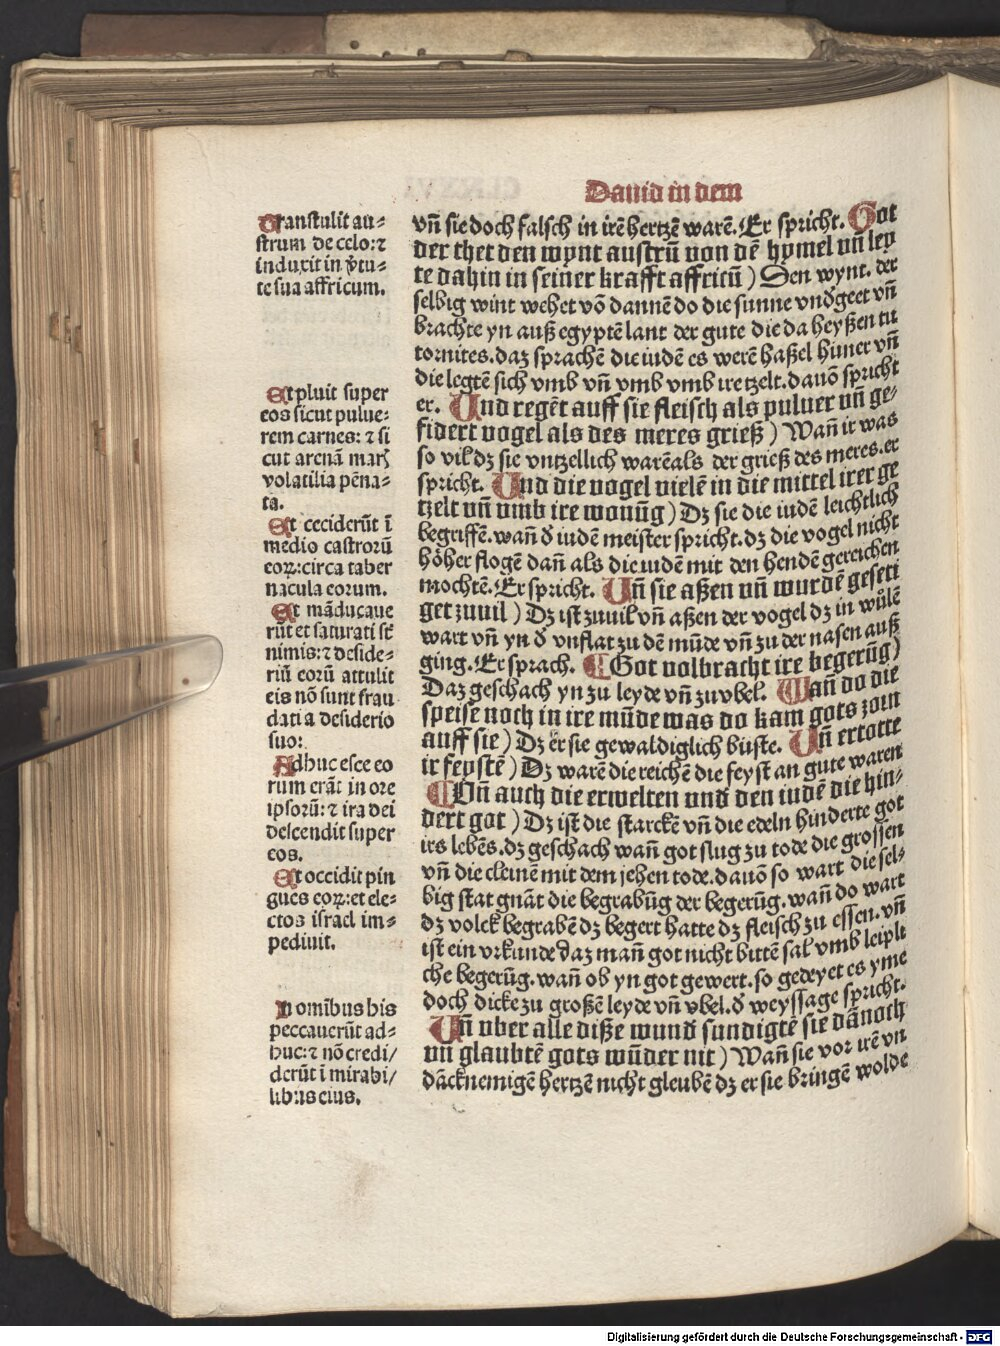 Dauid in dem
Transtulit au⸗
strum de celo: ⁊
induxit in v̓tu⸗
te sua affricum.
Et pluit super
eos sicut pulue⸗
rem carnes: ⁊ si
cut arenā marꝭ
volatilia pēna⸗
ta.
Et ceciderūt ī
medio castrorū
eoꝝ: circa taber
nacula eorum.
Et māducaue
rūt et saturati sūt
nimis: ⁊ deside⸗
riū eorū attulit
eis nō sunt frau
dati a desiderio
suo:
Adhuc esce eo
rum erāt in ore
ipsorū: ⁊ ira dei
descendit super
eos.
Et occidit pin
gues eoꝝ: et ele⸗
ctos israel im⸗
pediuit.
In omībus his
peccauerūt ad⸗
huc: ⁊ nō credi/
derūt ī mirabi/
libus eius.
vn̄ sie doch falsch in irē hertzē warē. Er spricht. Got
der thet den wynt austrū von dē hymel vn̄ ley
te dahin in seiner krafft affricū) Den wynt. der
selbig wint wehet vō dannē do die sunne vndgeet vn̄
brachte yn auß egyptē lant der gute die da heyßen tu
tornites. daz sprachē die iudē es werē haßel hüner vn̄
die legtē sich vmb vn̄ vmb vmb ire tzelt. dauō spricht
er. Und regēt auff sie fleisch als puluer vn̄ ge⸗
fidert vogel als des meres grieß) Wan̄ ir was
so vil dz sie vntzellich warē als der grieß des meres. er
spricht. Und die vogel vielē in die mittel irer ge
tzelt vn̄ vmb ire wonūg) Dz sie die iudē leichtlich
begriffē. wan̄ d̓ iudē meister spricht. dz die vogel nicht
höher flogē dan̄ als die iudē mit den hendē gereichen
mochtē. Er spricht. Un̄ sie aßen vn̄ wurdē geseti
get zuuil) Dz ist zuuil vn̄ aßen der vogel dz in wůlē
wart vn̄ yn d̓ vnflat zu dē mūde vn̄ zu der nasen auß
ging. Er sprach. Got volbracht ire begerūg)
Daz geschach yn zu leyde vn̄ zu vbel. Wan̄ do die
speise noch in ire mūde was do kam gots zorn
auff sie) Dz er sie gewaldiglich büste. Un̄ ertotte
ir feystē) Dz warē die reichē die feyst an gute waren
Un̄ auch die erwelten vnd den iudē die hin⸗
dert got) Dz ist die starckē vn̄ die edeln hinderte got
irs lebēs. dz geschach wan̄ got slug zu tode die grossen
vn̄ die cleinē mit dem jehen tode. dauō so wart die sel⸗
big stat gnāt die begrabūg der begerūg. wan̄ do wart
dz volck begrabē dz begert hatte dz fleisch zu essen. vn̄
ist ein vrkunde daz man̄ got nicht bittē sal vmb leipli
che begerūg. wan̄ ob yn got gewert. so gedeyet es yme
doch dicke zu großē leyde vn̄ vbel. d̓ weyssage spricht.
Un̄ vber alle diße wund sundigtē sie dānoch
vn̄ glaubtē gots wūder nit) Wan̄ sie vor irē vn
dācknemigē hertzē nicht gleubē dz er sie bringē wolde
Digitalisierung gefördert durch die Deutsche Forschungsgemeinschaft - DFG